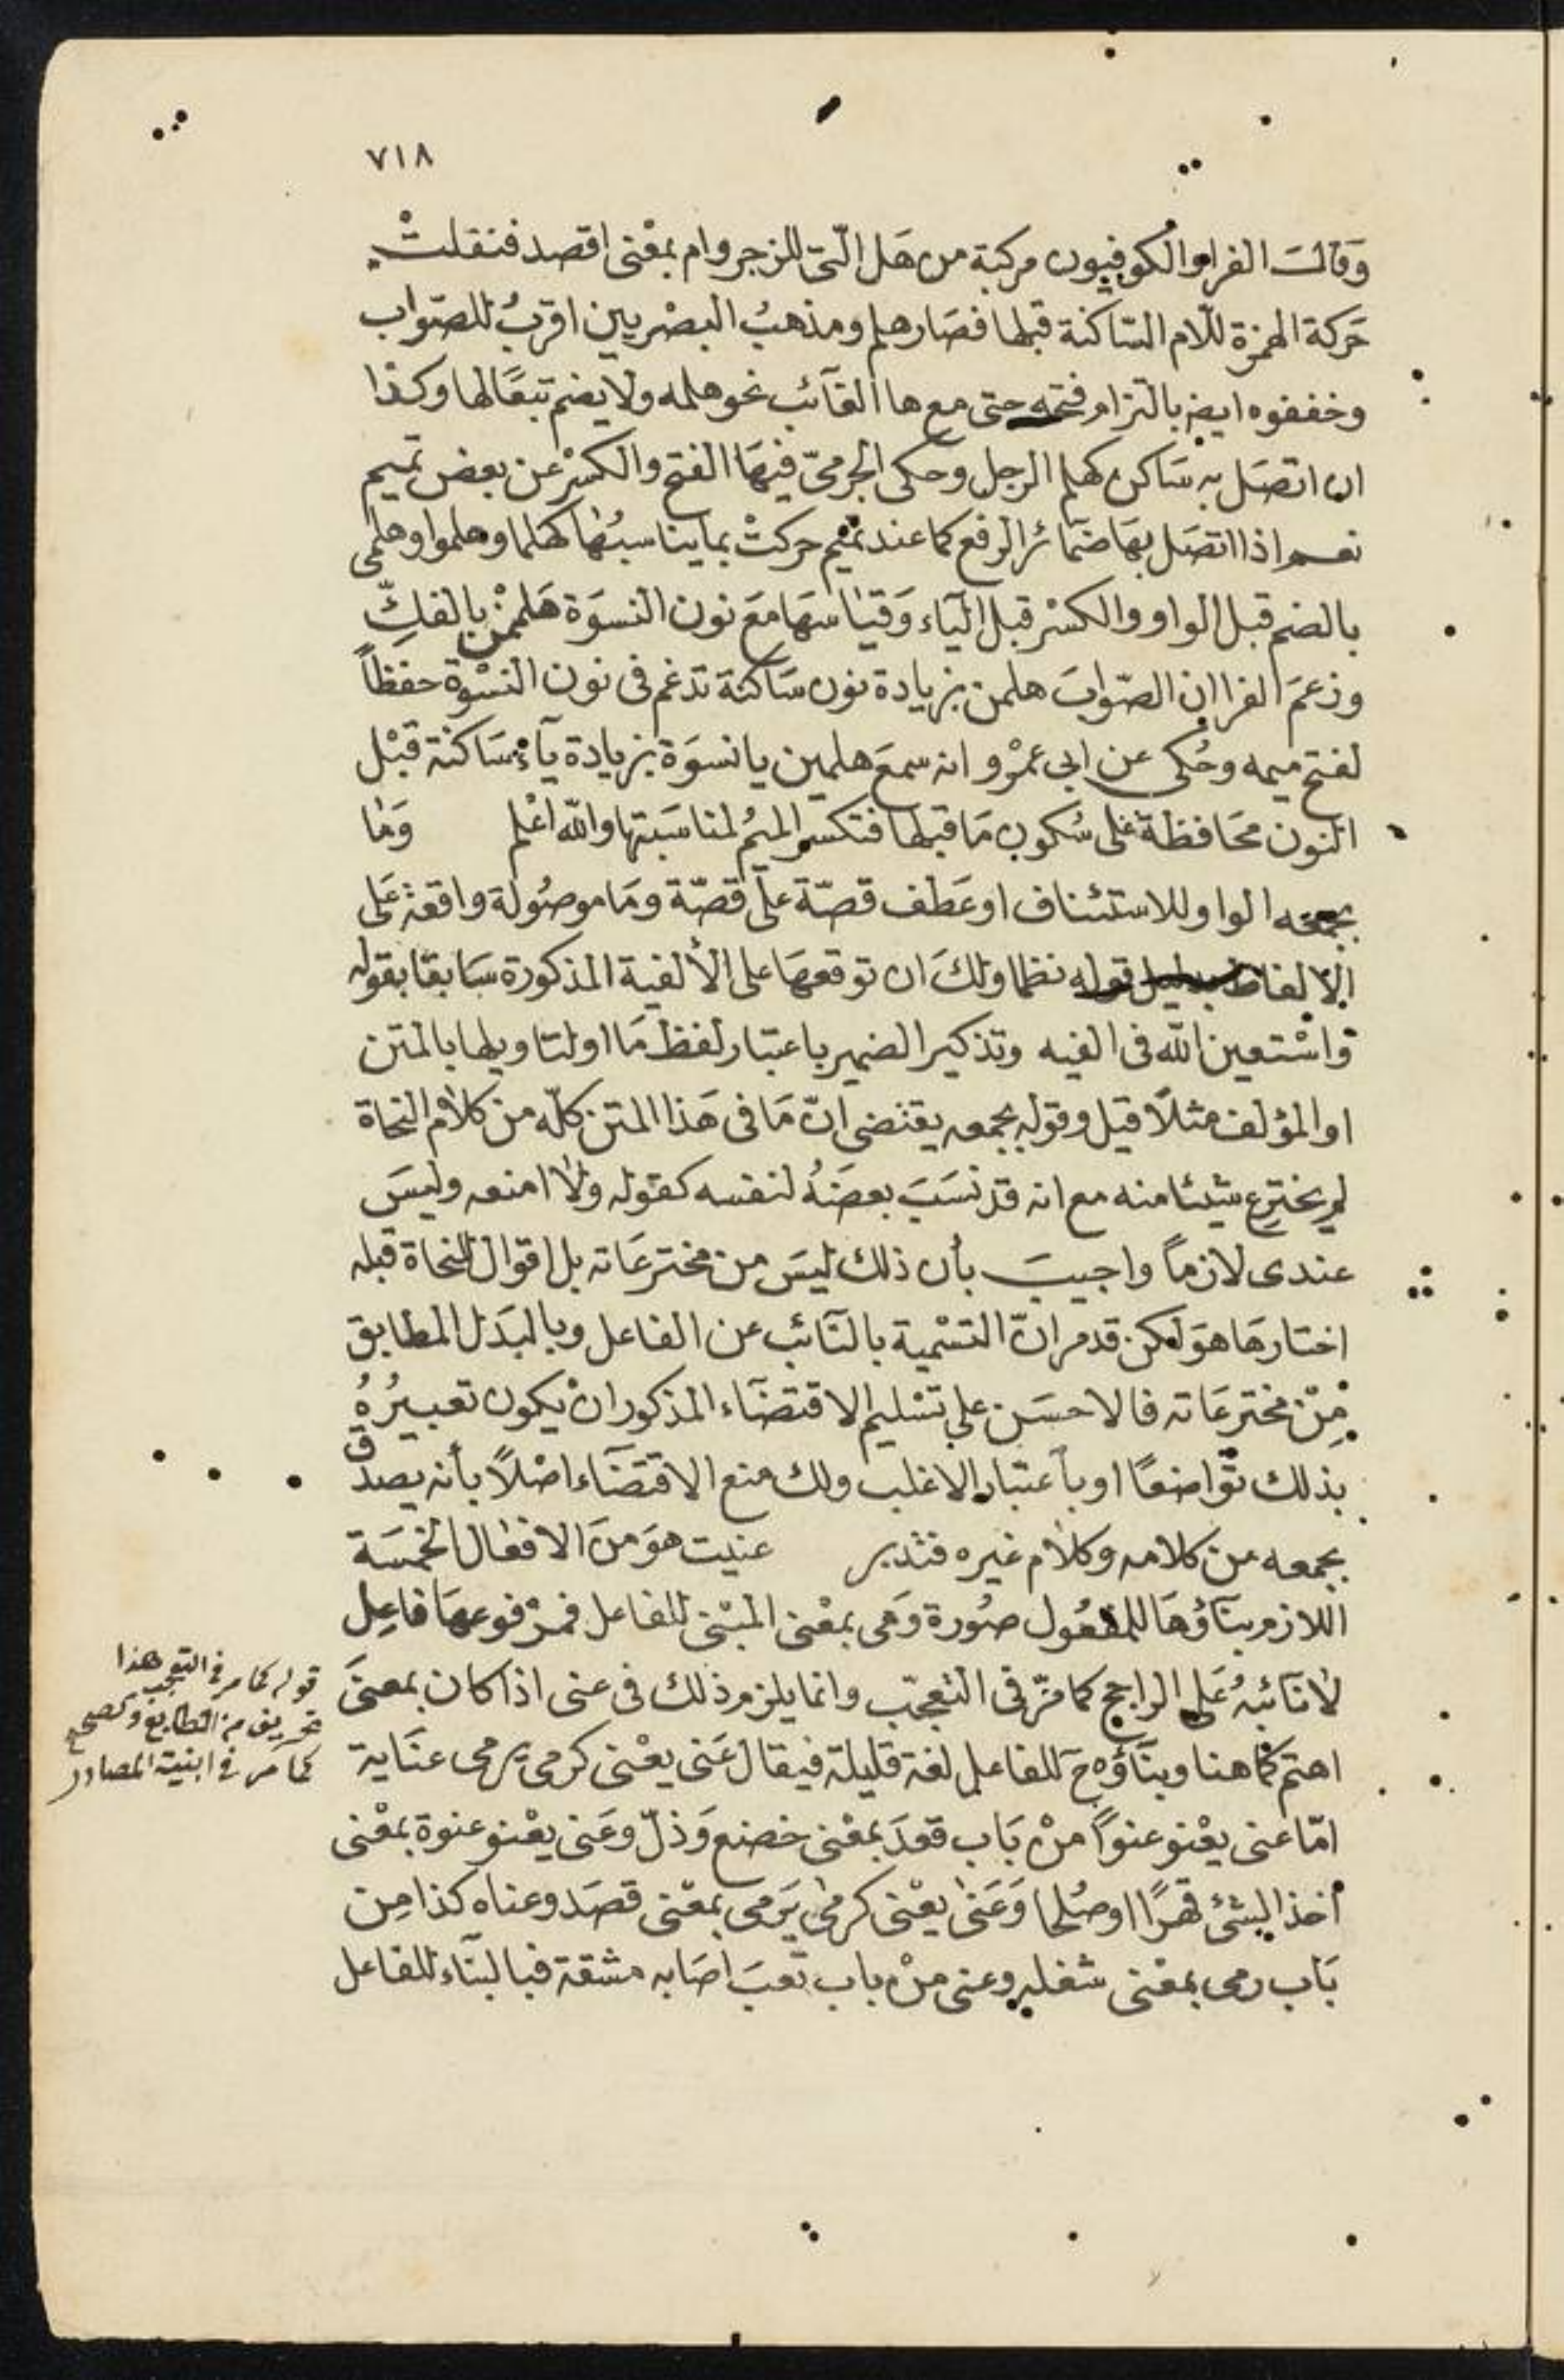 ٧١٨
وَقالت الفرا والكوفيون مركبة من هَل الّتى للزجر وام بمعْنى اقصد فنقلتْ
حَركة الهمزة للّام السّاكنة قبلها فصَار هلم ومذهبُ البصْريين اقربُ للصّواب
وخففوه ايضا بالتزام فتحه حتى مع ها الغآئب نحو هلمه ولا يضم تبعًا لها وكذا
ان اتصَل به سَاكن كهلم الرجل وحكى الجرمىّ فيهَا الفتح والكسْر عن بعض تميم
نعم اذا اتصَل بهَا ضمَائر الرفع كما عند تميم حركتْ بما يناسبُها كهَلما وهلموا وهلمى
بالضم قبل الواو والكسْر قبل اليَاء وَقيَاسهَا مَعَ نون النسوَة هَلممْن بالفكِّ
وزعمَ الفرا ان الصّوابَ هلمن بزيادة نون سَاكنة تدغم فى نون النسْوة حفظاً
لفتح ميمه وحُكى عن ابى عمْرو انه سمعَ هلمين يا نسوَة بزيادة يآء سَاكنة قبْل
النون محَافظة عَلى سُكون مَا قبلها فتكسر الميمُ لمناسَبتها والله اعْلم وَمَا
بجمعه الواو للاستئناف او عَطف قصّة علَى قصّة ومَا موصُولة واقعة عَلى
الالفاظ بدليل قوله نظما ولكَ ان توقعهَا على الألفية المذكورة سَابقا بقوله
وَاسْتعين الله فى الفيه وتذكير الضمير باعتبار لفظ مَا او لتاويلها بالمتن
او المؤلف مثلاً قيل وقوله بجمعه يقتضى انّ مَا فى هَذا المتن كلّه من كلَام النحاة
لم يخترع شيئا منه مع انه قد نسَبَ بعضَهُ لنفسه كقوله ولا امنعه وليسَ
عندى لازماً واجيبَ بأن ذلك ليسَ من مخترعَاته بل اقوال للنحاة قبله
اختارهَا هوَ لكن قد مر انّ التسْمية بالنآئب عن الفاعل وبالبدَل المطابق
مِنْ مخترعَاته فالاحسَن على تسْليم الاقتضَآء المذكور انْ يكون تعبيرُهُ
بذلك توَاضعًا او باعتبار الاغلب ولك منع الاقتضَآء اصْلاً بأنه يصدق
بجمعه من كلامه وكلام غيره فتدبر عنيت هوَ منَ الافعَال الخمسَة
اللازم بنآؤهَا للمفعُول صُورة وَهى بمعْنى المبْنى للفاعل فمرْفوعهَا فاعِل
لانآئبهُ عَلى الراجح كما مرّ فى التعجّب وانما يلزم ذلك فى عنى اذا كان بمعنىَ
اهتم كما هنا وبنآؤه ح للفاعل لغة قليلة فيقال عَنى يعْنى كرمى يرمى عنَاية
امّا عنى يعْنو عنواً منْ بَاب قعَدَ بمعْنى خضع وَذلّ وعَنى يعْنو عنوة بمعْنى
أخذ الشئ قهرًا او صُلحا وَعَنى يعْنى كرمى يَرمى بمعْنى قصَد وعناه كذا مِن
بَاب رمى بمعْنى شغله وعنى منْ باب تعبَ اصَابه مشقة فبالبنَآء للفاعل
قوله كما مر فى التعجب هذا
تحريف من الطابع وتصحيح
كما مر فى ابنية المصادر